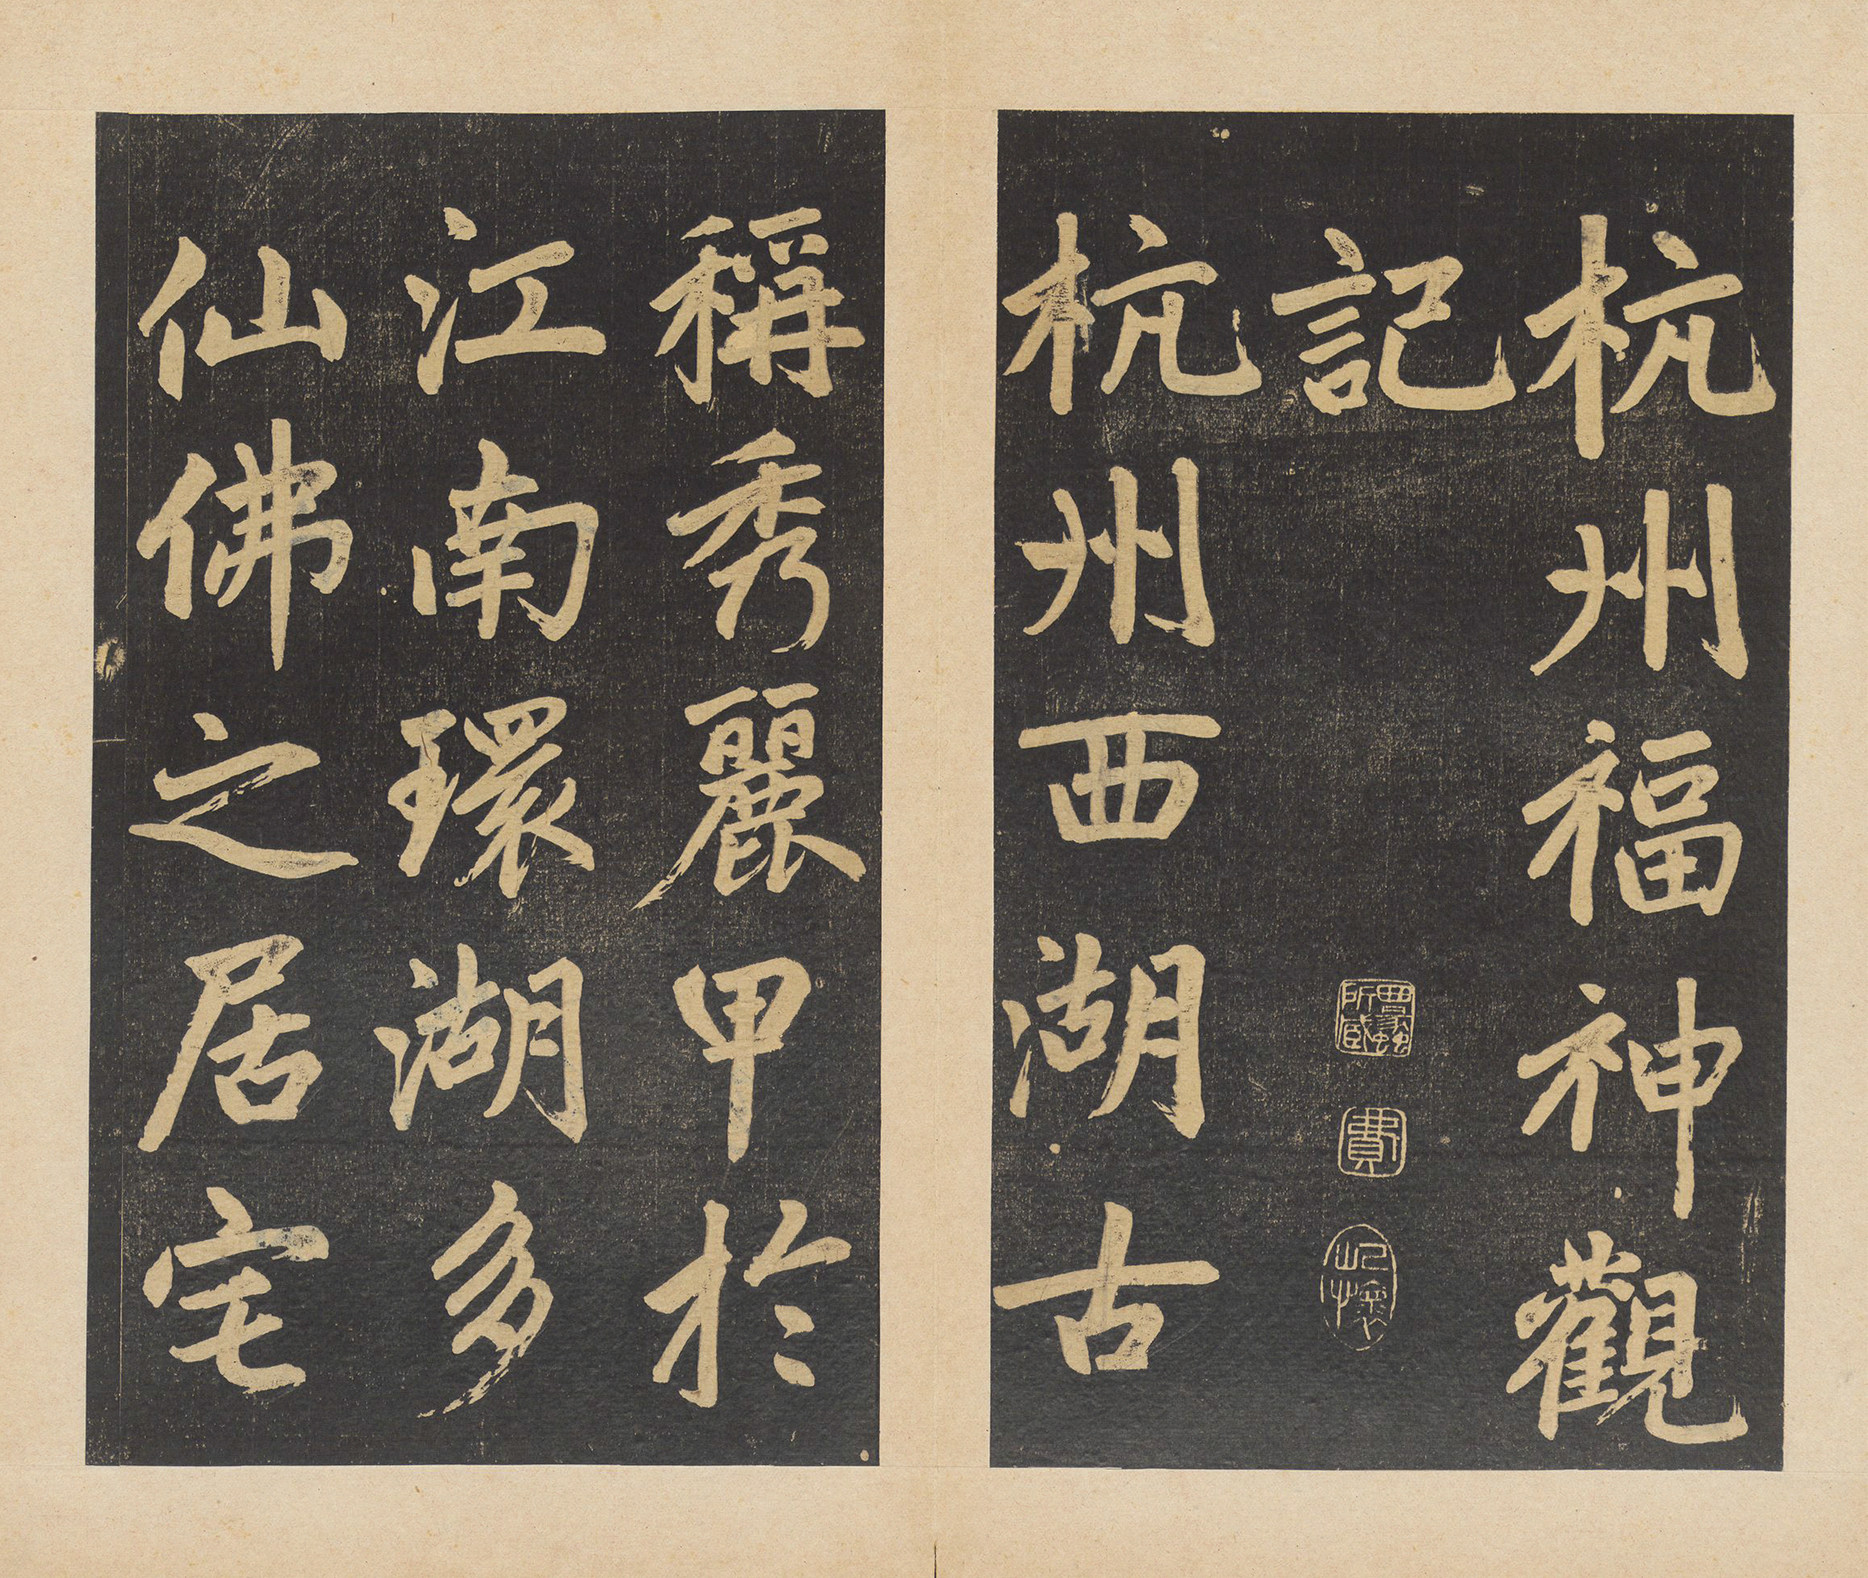 杭州福神觀
記
杭州西湖古
稱秀麗甲於
江南環湖多
仙佛之居宅
費